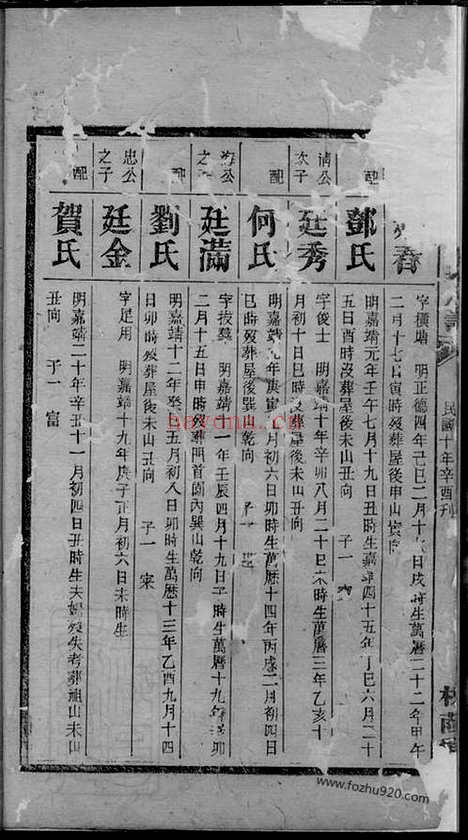 民國十年辛酉刊
春
字橫塘 明正德四年己巳二月十 日戌時生萬曆二十二年甲午
二月十七日寅時歿葬屋後申山寅向
配
鄧氏
明嘉靖元年壬午七月十九日丑時生嘉 四十五年丁巳六月二十
五日酉時沒葬屋後未山丑向 子一
清公次子
廷秀
字俊士 明嘉靖十年辛卯八月二十日 未時生萬曆三年乙亥十
月初十日巳時歿葬屋後未山丑向
配
何氏
明嘉靖 年庚寅 月初六日卯時生萬曆十四年丙戌二月初四日
巳時歿葬屋後巽山乾向 子一
公之
廷滿
字拔 明嘉靖 一年壬辰四月十九日子時生萬曆十九年 卯
二月十五日申時歿葬門首園內巽山乾向
配
劉氏
明嘉靖十二年癸 五月初八日卯時生萬曆十三年乙酉九月十四
日卯時歿葬屋後未山丑向 子一 宋
忠公之子
廷金
字足用 明嘉靖十九年庚子正月初六日未時生
配
賀氏
明嘉靖二十年辛丑十一月初四日丑時生夫婦歿失考葬祖山未山
丑向 子一 富
nayona.cn
www.fozhu920.com